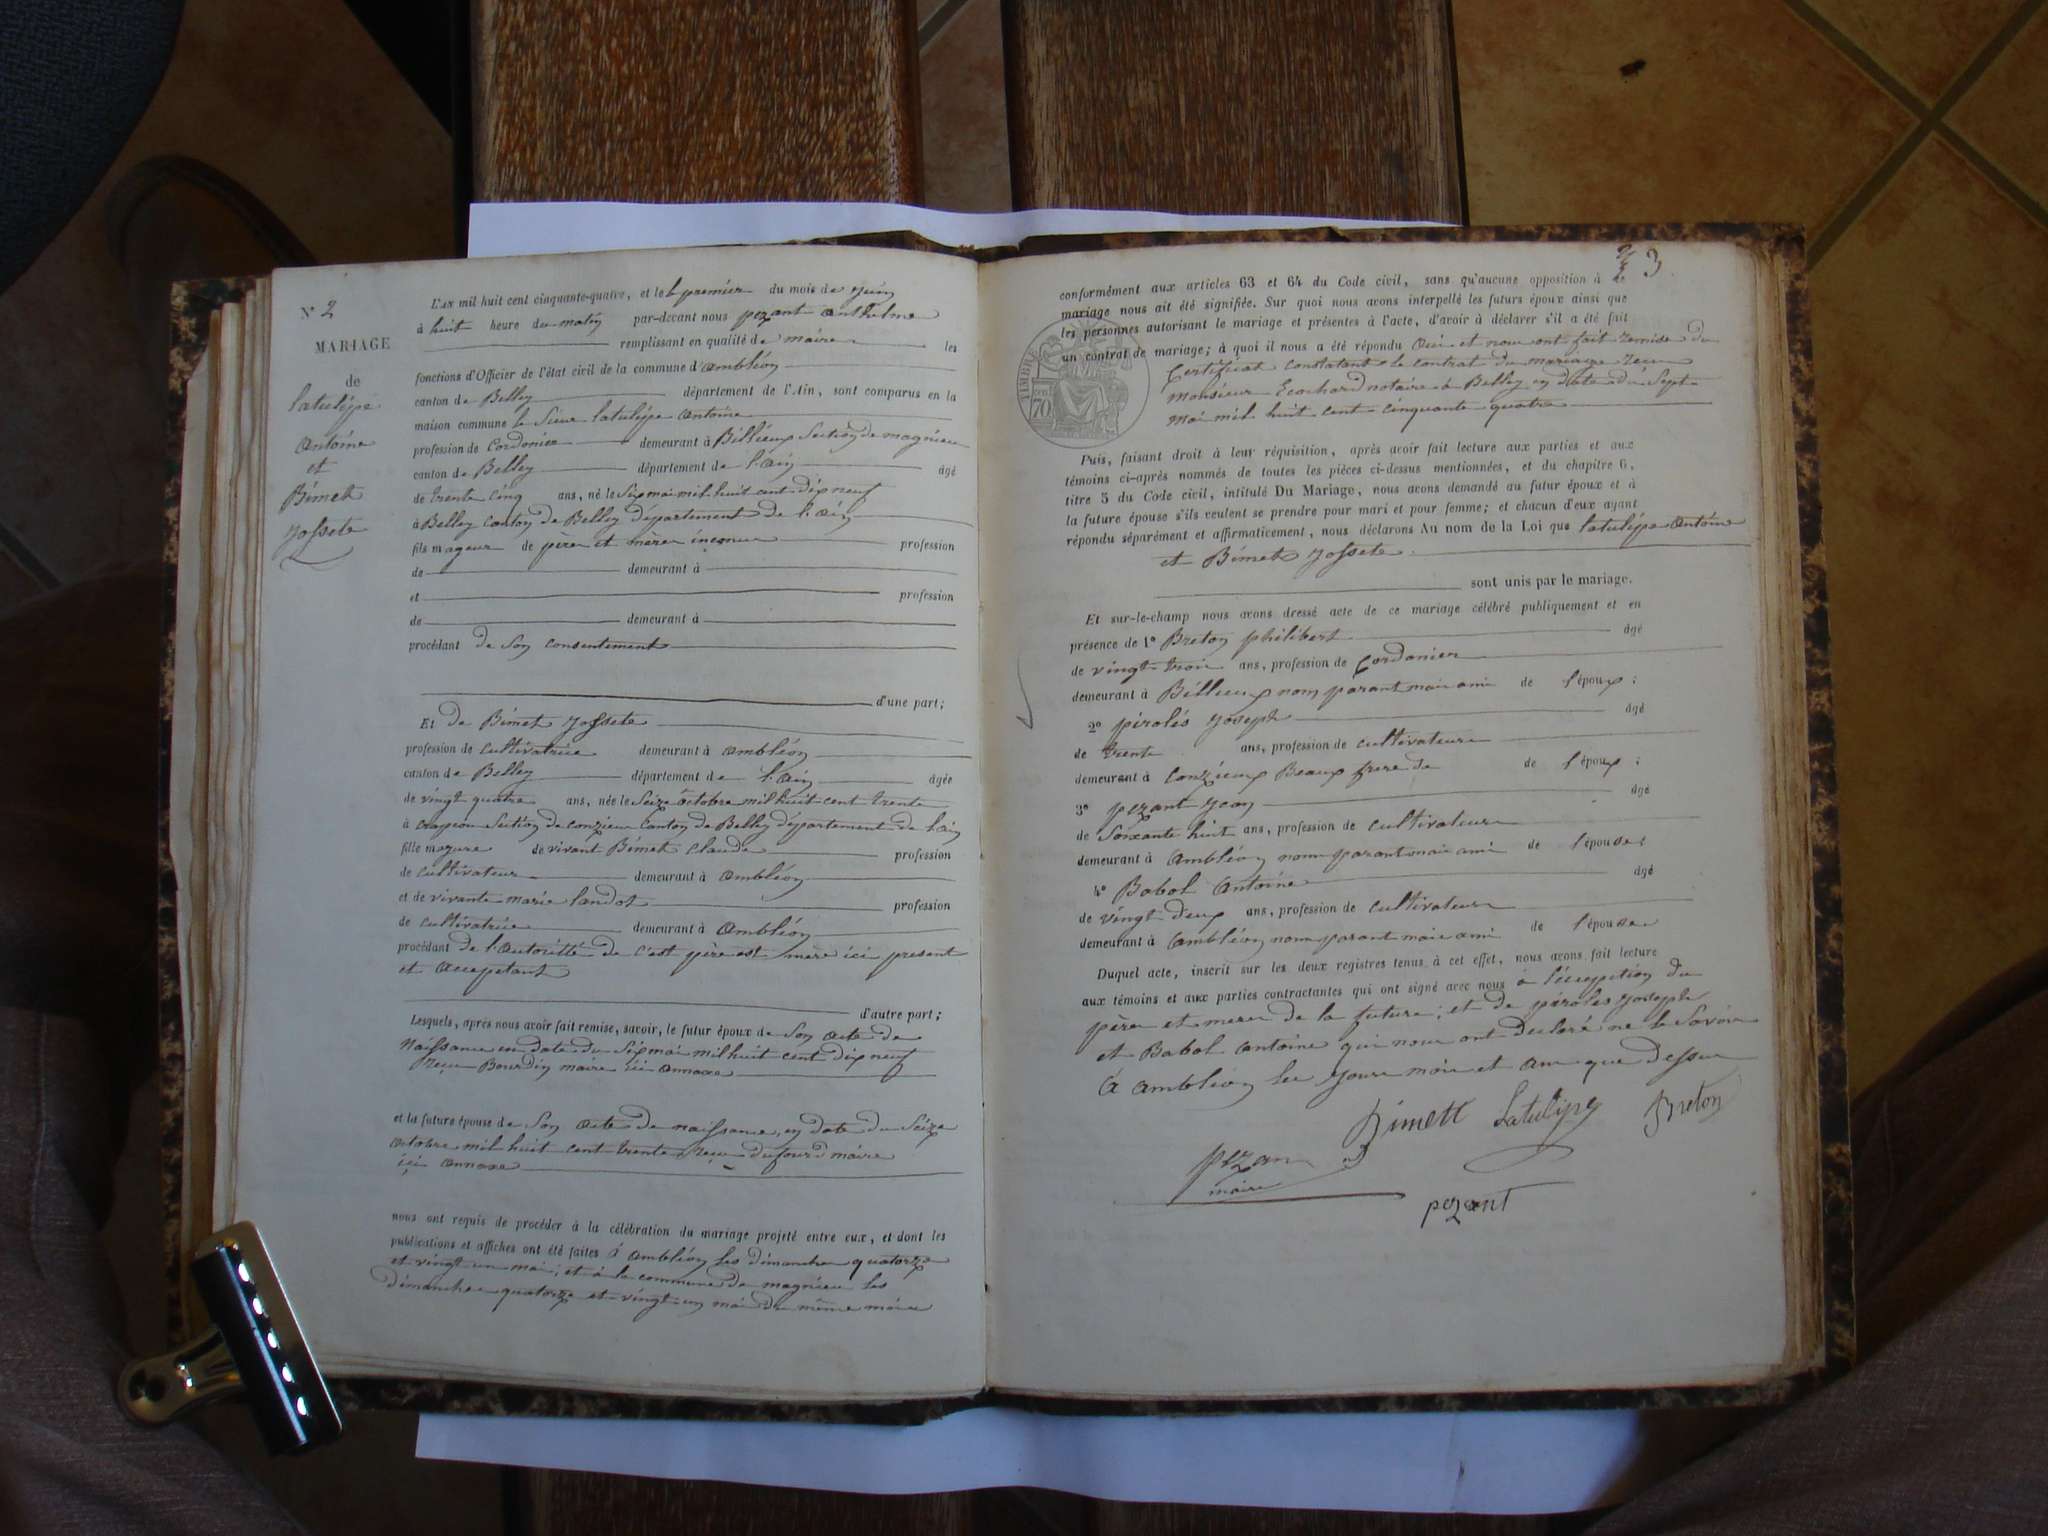 N° 2
MARIAGE
de
latulipe
antoine
et
Bimet
Jossete
L'AN mil huit cent cinquante-quatre, et le premier du mois de juin
à huit heure du matin par-devant nous pezant anthelme
remplissant en qualité de maire les
fonctions d'Officier de l'état civil de la commune d'ambléon
canton de Belley département de l'Ain, sont comparus en la
maison commune le Sieur latulipe antoine
profession de Cordonier demeurant à Billieux Section de magnieu
canton de Belley département de l'ain âgé
de trente cinq ans, né le Six mai mil huit cent dix neuf
à Belley canton de Belley département de l'ain
fils mageur de père et mère inconu profession
de demeurant à
et profession
de demeurant à
procédant de Son consentement
d'une part;
Et de Bimet Jossete
profession de cultivatrice demeurant à ambléon
canton de Belley département de l'ain âgée
de vingt quatre ans, née le Seize octobre mil huit cent trente
à crapeou Section de conzieu canton de Belley département de l'ain
fille majure de vivant Bimet claude profession
de cultivateur demeurant à ambléon
et de vivante marie landot profession
de cultivatrice demeurant à ambléon
procédant de l'autoritté de c'est père est mère ici present
et accepetant
d'autre part;
Lesquels, après nous avoir fait remise, savoir, le futur époux de Son acte de
Naissance en date du Six mai mil huit cent dix neuf
Reçu Bourdin maire ici annaxe
et la future épouse de Son acte de naissance, en date du Seize
octobre mil huit cent trente Reçu dufour maire
ici annaxe
nous ont requis de procéder à la célébration du mariage projeté entre eux, et dont les
publications et affiches ont été faites à ambléon les dimanche quatorze
et vingt un mai; et à la commune de magnieu les
dimanche quatorze et vingt un mai du même mois
3
conformément aux articles 63 et 64 du Code civil, sans qu'aucune opposition à ce
mariage nous ait été signifiée. Sur quoi nous avons interpellé les futurs époux ainsi que
les personnes autorisant le mariage et présentes à l'acte, d'avoir à déclarer s'il a été fait
un contrat de mariage; à quoi il nous a été répondu oui et nous ont fait remise du
Certificat constatant le contrat du mariage reçu
monsieur Ecochard notaire à Belley en date du Sept
mai mil huit cent cinquante quatre
TIMBRE
70
Puis, faisant droit à leur réquisition, après avoir fait lecture aux parties et aux
témoins ci-après nommés de toutes les pièces ci-dessus mentionnées, et du chapitre 6,
titre 5 du Code civil, intitulé Du Mariage, nous avons demandé au futur époux et à
la future épouse s'ils veulent se prendre pour mari et pour femme; et chacun d'eux ayant
répondu séparément et affirmativement, nous déclarons Au nom de la Loi que latulipe antoine
et Bimet Jossete
sont unis par le mariage.
Et sur-le-champ nous avons dressé acte de ce mariage célébré publiquement et en
présence de 1° Breton philibert âgé
de vingt trois ans, profession de Cordonier
demeurant à Billieux non parant mais ami de l'époux;
2° pirolés Joseph âgé
de trente ans, profession de cultivateur
demeurant à Conzieux Beaux frere de de l'époux;
3° pezant Jean âgé
de Soixante huit ans, profession de cultivateur
demeurant à ambléon nom parant mais ami de l'épouse;
4° Babol antoine âgé
de vingt deux ans, profession de cultivateur
demeurant à ambléon nom parant mais ami de l'épouse
Duquel acte, inscrit sur les deux registres tenus à cet effet, nous avons fait lecture
aux témoins et aux parties contractantes qui ont signé avec nous à l'éxception du
père et mere de la future; et de pirolés Joseph
et Babol antoine qui nous ont declaré ne le Savoir
à ambléon les jour mois et an que dessus
Bimett Latulipe Breton
pezan
maire
pezant